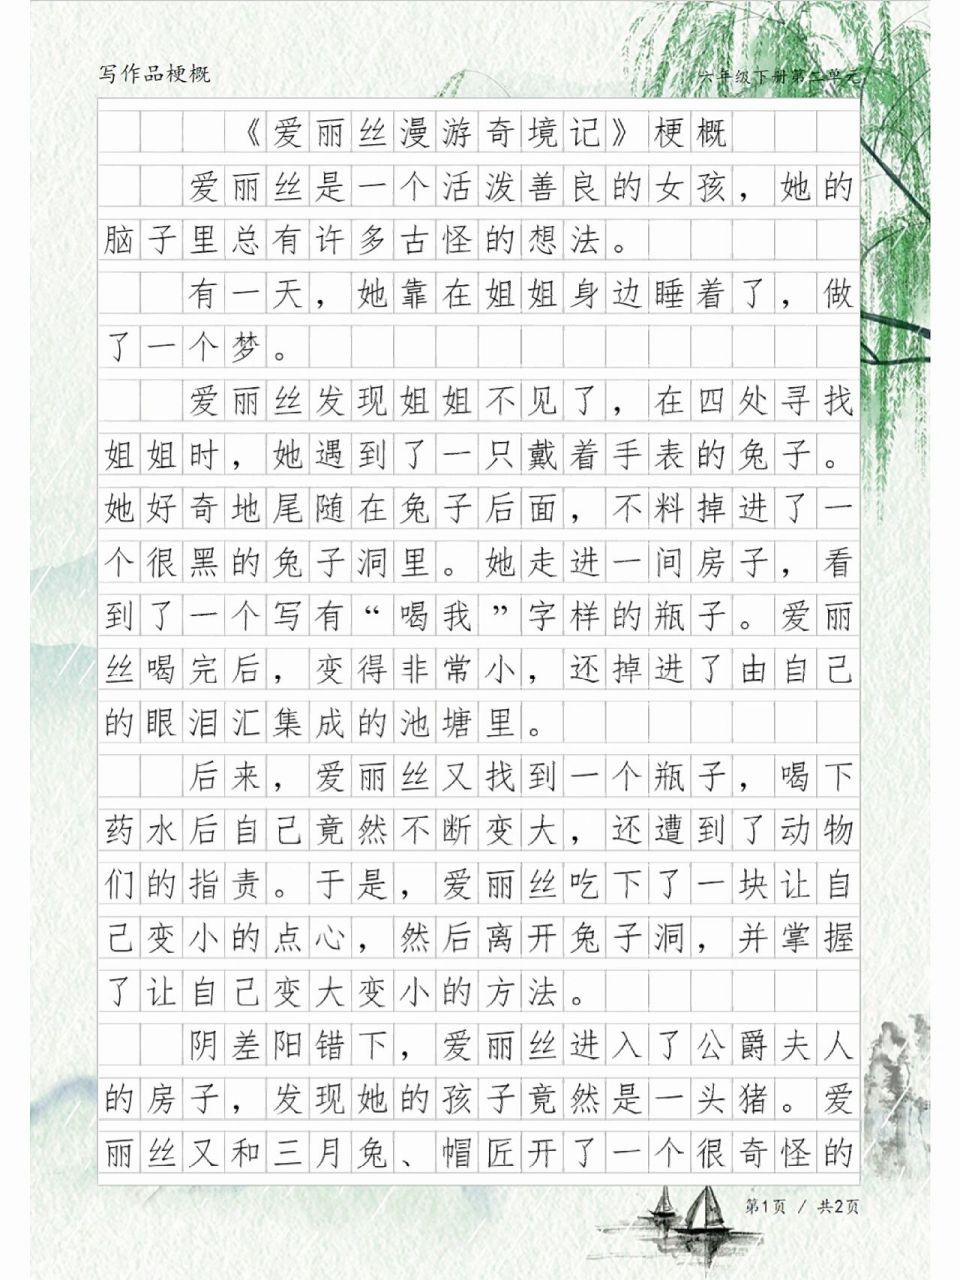 写作品梗概
六年级下册第二单元
《爱丽丝漫游奇境记》梗概
爱丽丝是一个活泼善良的女孩，她的
脑子里总有许多古怪的想法。
有一天，她靠在姐姐身边睡着了，做
了一个梦。
爱丽丝发现姐姐不见了，在四处寻找
姐姐时，她遇到了一只戴着手表的兔子。
她好奇地尾随在兔子后面，不料掉进了一
个很黑的兔子洞里。她走进一间房子，看
到了一个写有“喝我”字样的瓶子。爱丽
丝喝完后，变得非常小，还掉进了由自己
的眼泪汇集成的池塘里。
后来，爱丽丝又找到一个瓶子，喝下
药水后自己竟然不断变大，还遭到了动物
们的指责。于是，爱丽丝吃下了一块让自
己变小的点心，然后离开兔子洞，并掌握
了让自己变大变小的方法。
阴差阳错下，爱丽丝进入了公爵夫人
的房子，发现她的孩子竟然是一头猪。爱
丽丝又和三月兔、帽匠开了一个很奇怪的
第1页 / 共2页